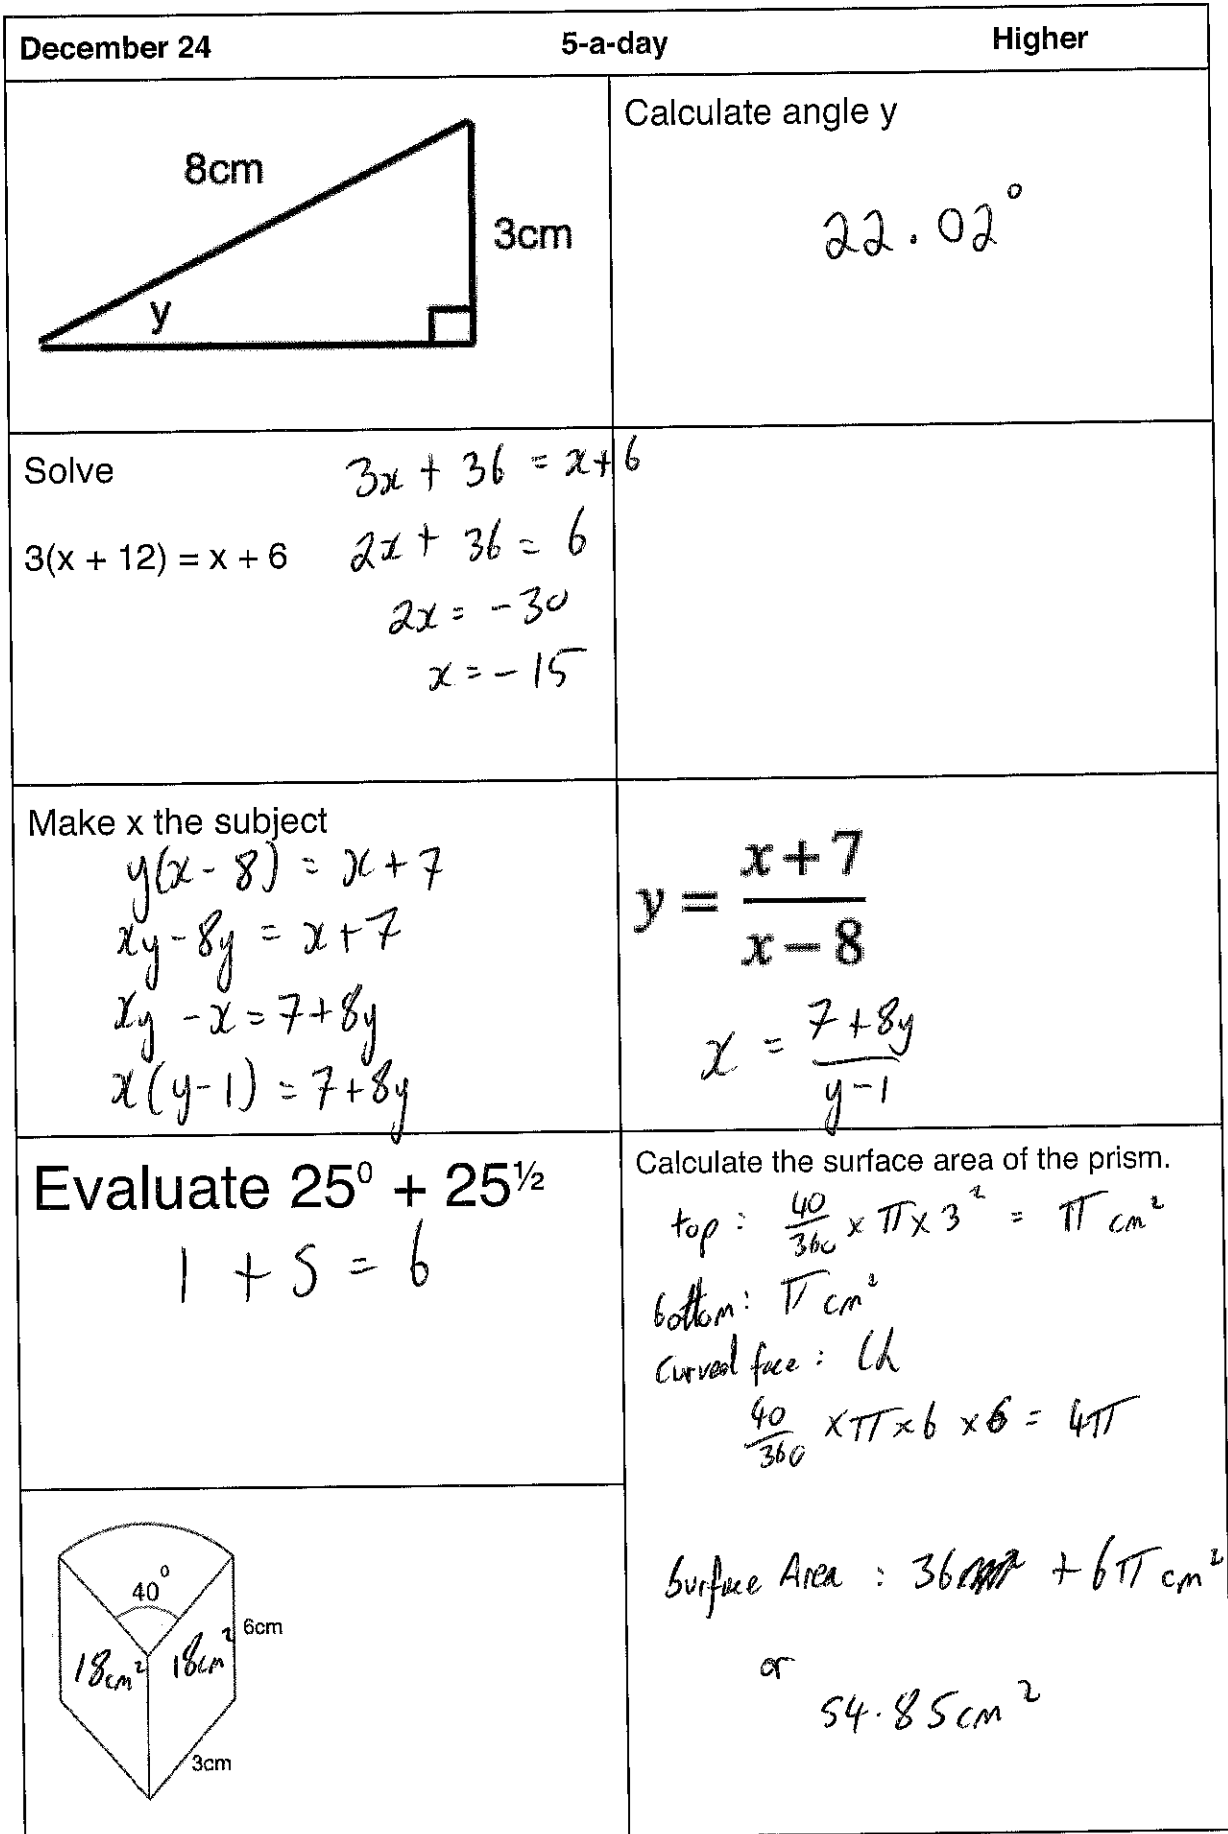 December 24 5-a-day Higher
8cm
3cm
y
Calculate angle y
22.02°
Solve
3(x + 12) = x + 6
3x + 36 = x+6
2x + 36 = 6
2x = -30
x = -15
Make x the subject
y(x - 8) = x + 7
xy - 8y = x + 7
xy - x = 7 + 8y
x(y-1) = 7+8y
y = (x+7)/(x-8)
x = (7+8y)/(y-1)
Evaluate 25⁰ + 25^½
1 + 5 = 6
Calculate the surface area of the prism.
top : 40/360 × π × 3² = π cm²
bottom: π cm²
Curved face : lh
40/360 × π × 6 × 6 = 4π
Surface Area : 36 + 6π cm²
or
54.85cm²
40°
6cm
18cm² 18cm²
3cm